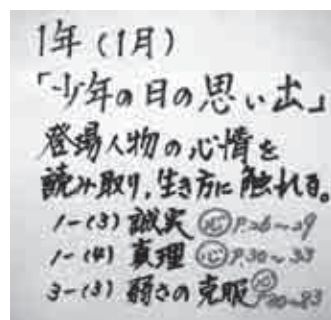 1年(1月)
「少年の日の思い出」
登場人物の心情を
読み取り,生き方に触れる。
1-(3) 誠実 ㊗心 P.26~29
1-(4) 真理 心 P.30~33
3-(3) 弱さの克服 心 P.80~83